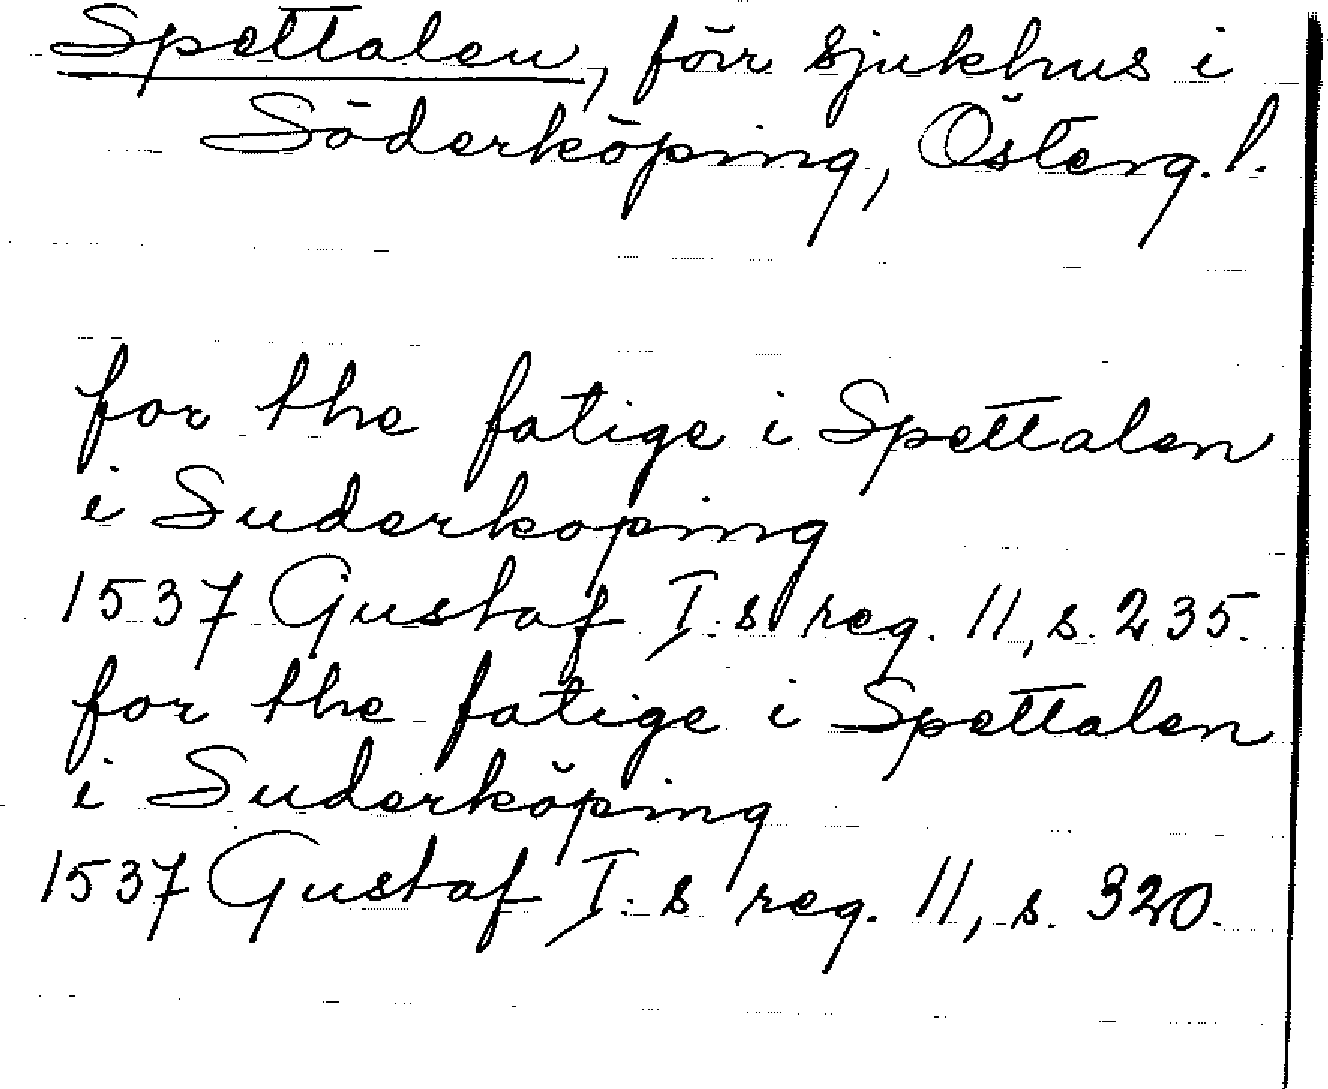 Spettalen, förr sjukhus i
Söderköping, Österg. l.
for the fatige i Spettalen
i Suderkoping
1537 Gustaf I:s reg. 11, s. 235.
for the fatige i Spettalen
i Suderköping
1537 Gustaf I:s reg. 11, s. 320.